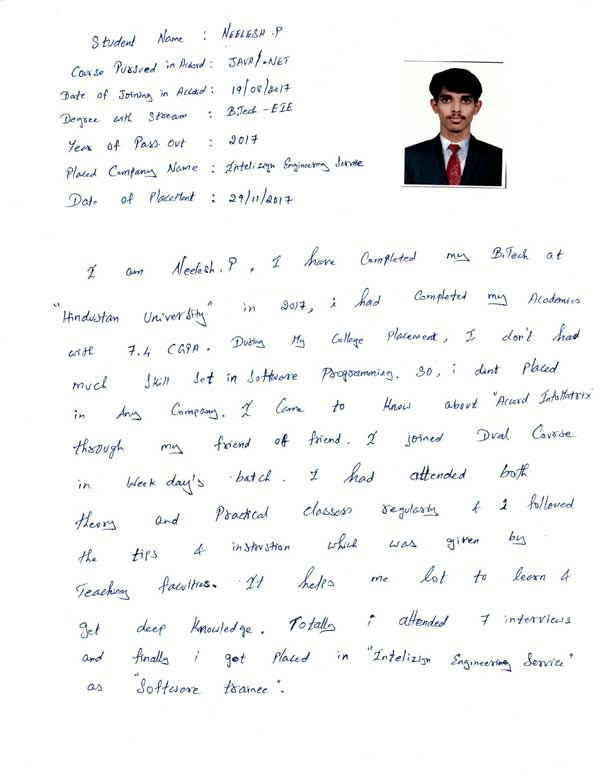 Student Name : NEELESH.P
Course Pursued in Accord : JAVA/.NET
Date of Joining in Accord : 19/08/2017
Degree with Stream : B.Tech - EIE
Year of Pass Out : 2017
Placed Company Name : Intelizign Engineering Service
Date of Placement : 29/11/2017
I am Neelesh.P, I have Completed my B.Tech at
"Hindustan University" in 2017, i had Completed my Academics
with 7.4 CGPA. During My College Placement, I don't had
much Skill Set in Software Programming. So, i dint Placed
in Any Company. I Came to Know about "Accord InfoMatrix"
through my friend of friend. I joined Dual Course
in Week day's batch. I had attended both
theory and Practical classess regularly & I followed
the tips & instrution which was given by
Teaching faculties. It helps me lot to learn &
get deep Knowledge. Totally i attended 7 interviews
and finally i got Placed in "Intelizign Engineering Service"
as "Software trainee".